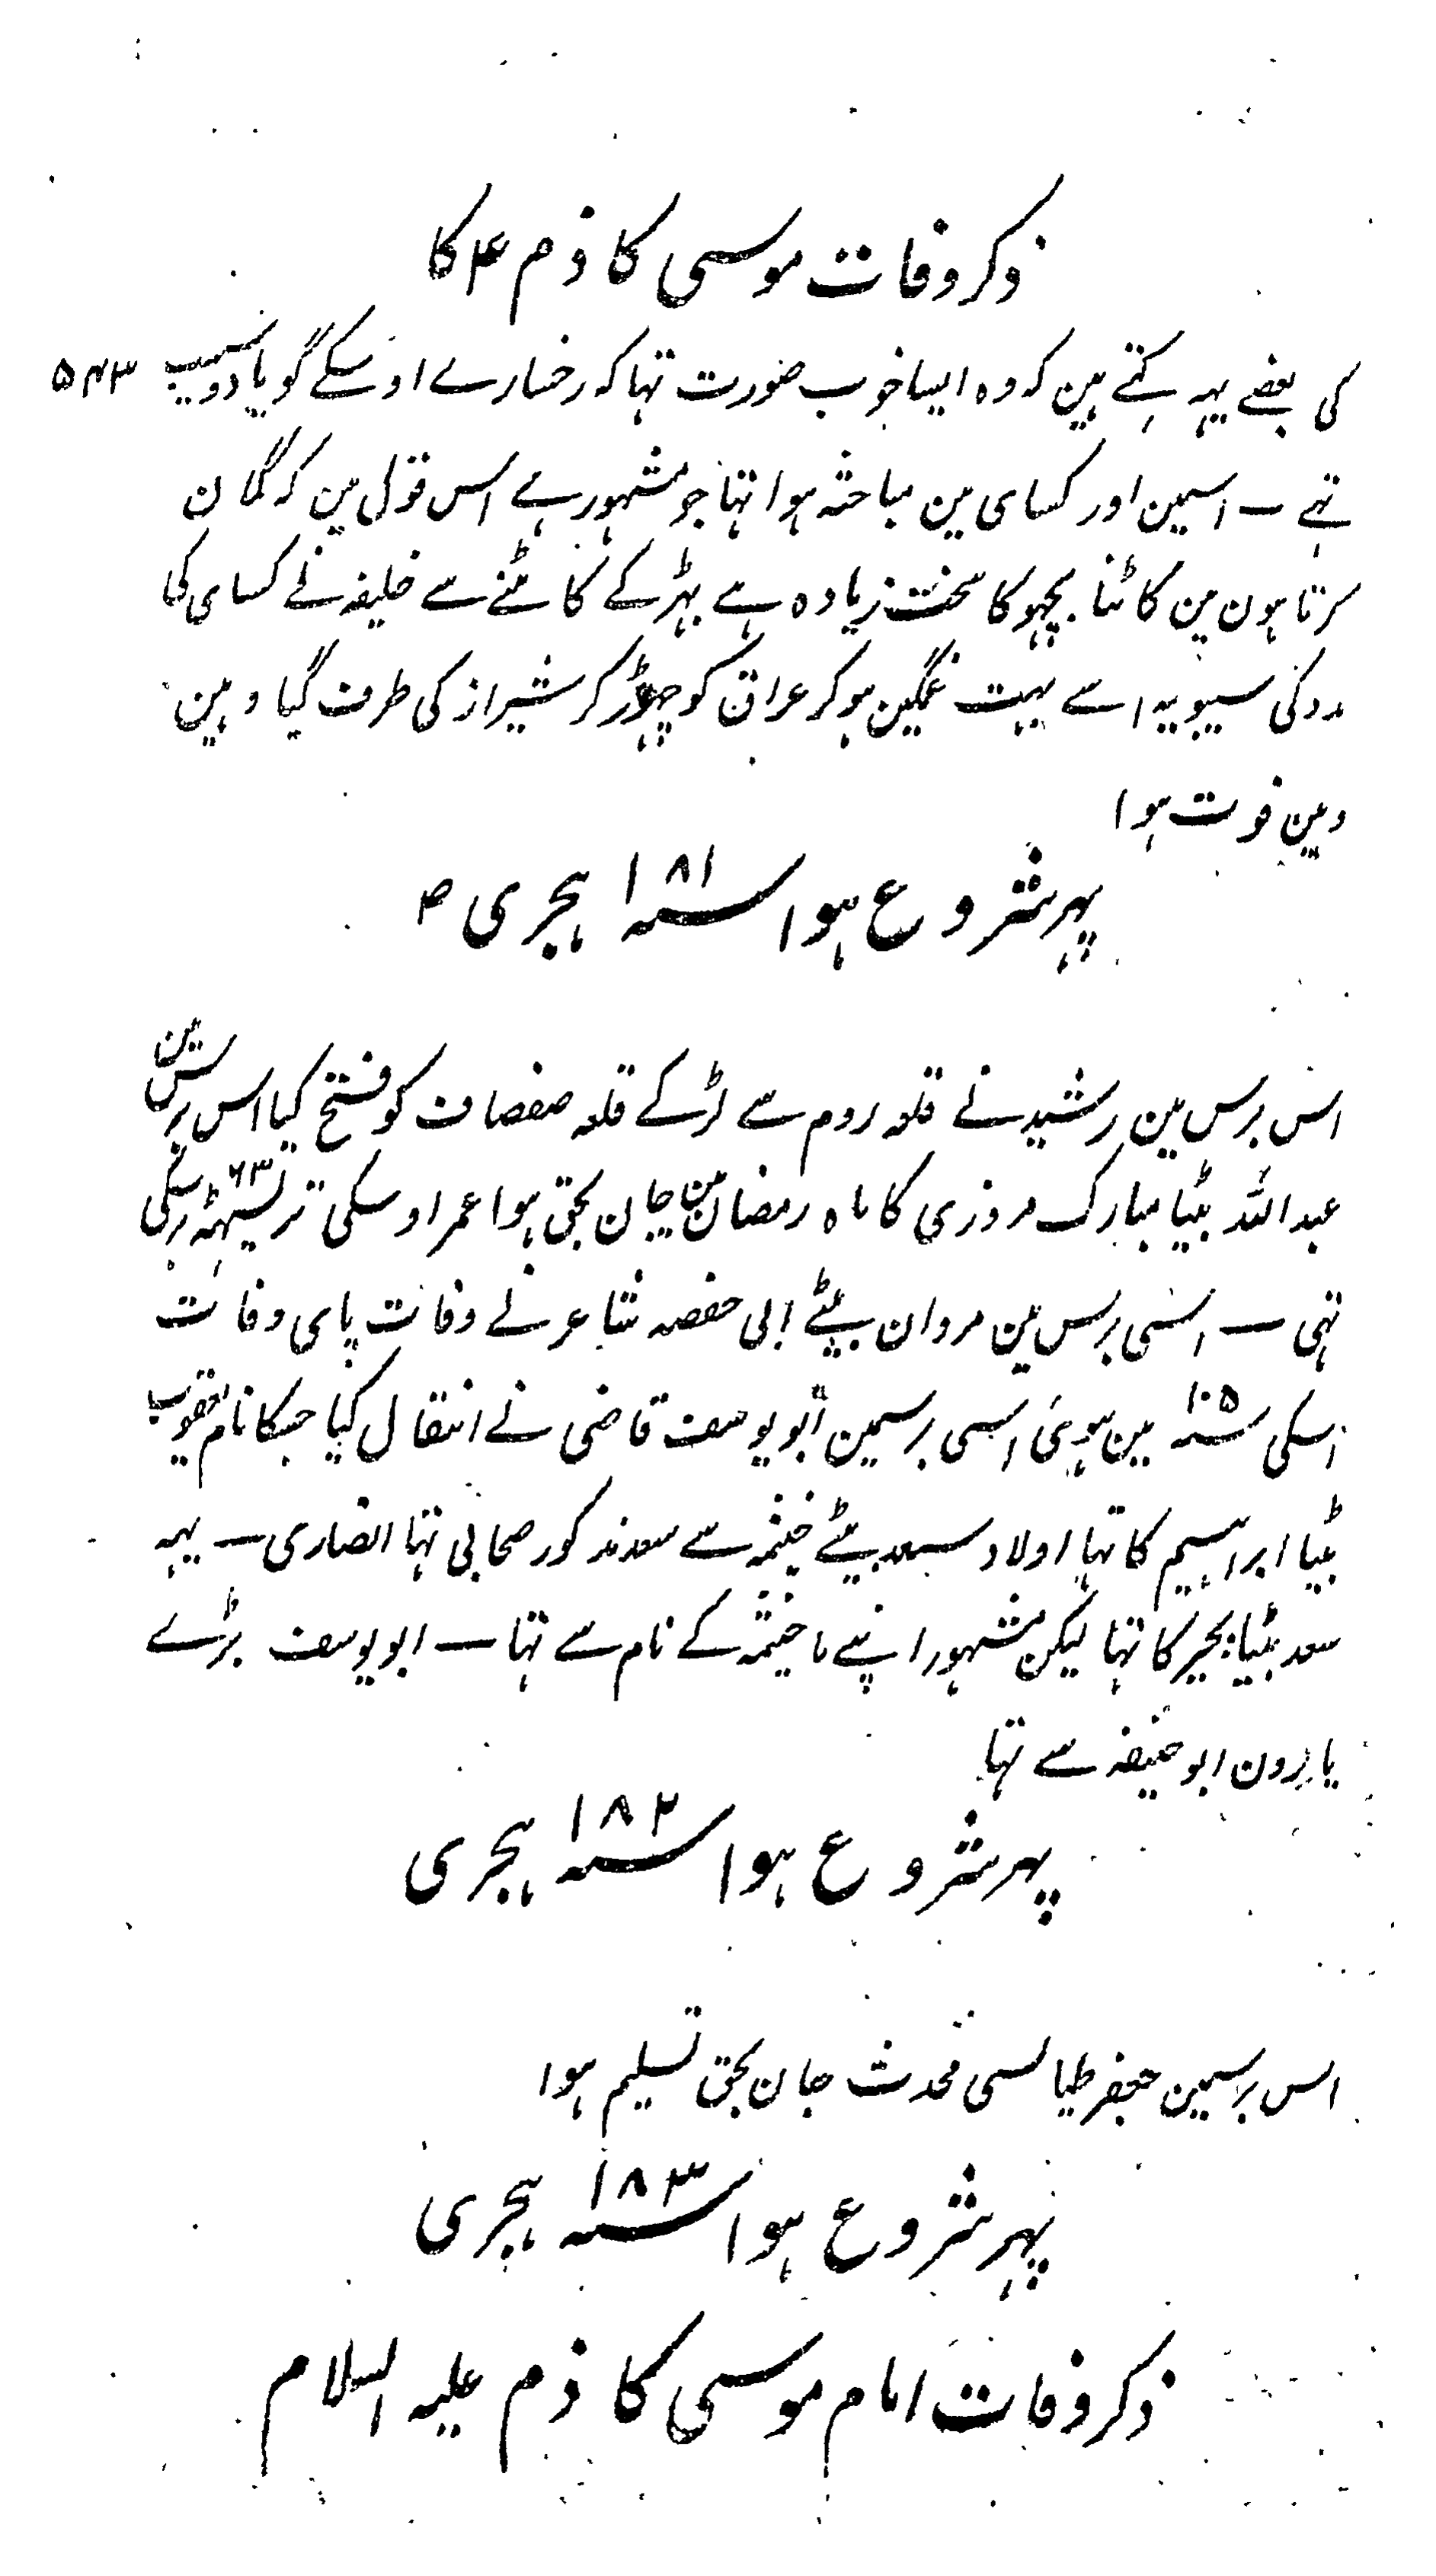 ذکر وفات موسی کاذم ؑ کا
۵۴۳
کی بعضے یہہ کہتے ہین کہ وہ ایسا خوب صورت تہا کہ رخسارے اوسکے گویا دو سیب
تہے ــ اسمین اور کسای مین مباحثہ ہوا تہا جو مشہور ہے اس قول مین کہ گمان
کرتا ہون مین کاٹنا بچہو کا سخت زیادہ ہے بہڑ کے کاٹنے سے خلیفہ نے کسای کی
مدد کی سیبویہ اسے بہت غمگین ہو کر عراق کو چہوڑ کر شیراز کی طرف گیا وہین
وہین فوت ہوا
پہر شروع ہوا سنہ ۱۸۱ ہجری
اس برس مین رشید نے قلعہ روم سے لڑکے قلعہ صفصاف کو فتح کیا اس برس مین
عبد اللہ بیٹیا مبارک مروزی کا ماہ رمضان مین جان بحق ہوا عمر اوسکی تریسہٹہ ۶۳ برسکی
تہی ــ اسی برس مین مروان بیٹے ابی حفصہ شاعر نے وفات پای وفات
اسکی سنہ ۱۰۵ مین ہوئی اسی برسمین ابو یوسف قاضی نے انتقال کیا جسکا نام یعقوب
بٹیا ابراہیم کا تہا اولاد سعد بیٹے خیثمہ سے سعد مذکور صحابی تہا انصاری ــ یہہ
سعد بٹیا بحیر کا تہا لیکن مشہور اپنے ما خیثمہ کے نام سے تہا ــ ابو یوسف بڑے
یارون ابو حنیفہ سے تہا
پہر شروع ہوا سنہ ۱۸۲ ہجری
اس برسمین جعفر طیالسی محدث جان بحق تسلیم ہوا
پہر شروع ہوا سنہ ۱۸۳ ہجری
ذکر وفات امام موسی کاذم علیہ السلام